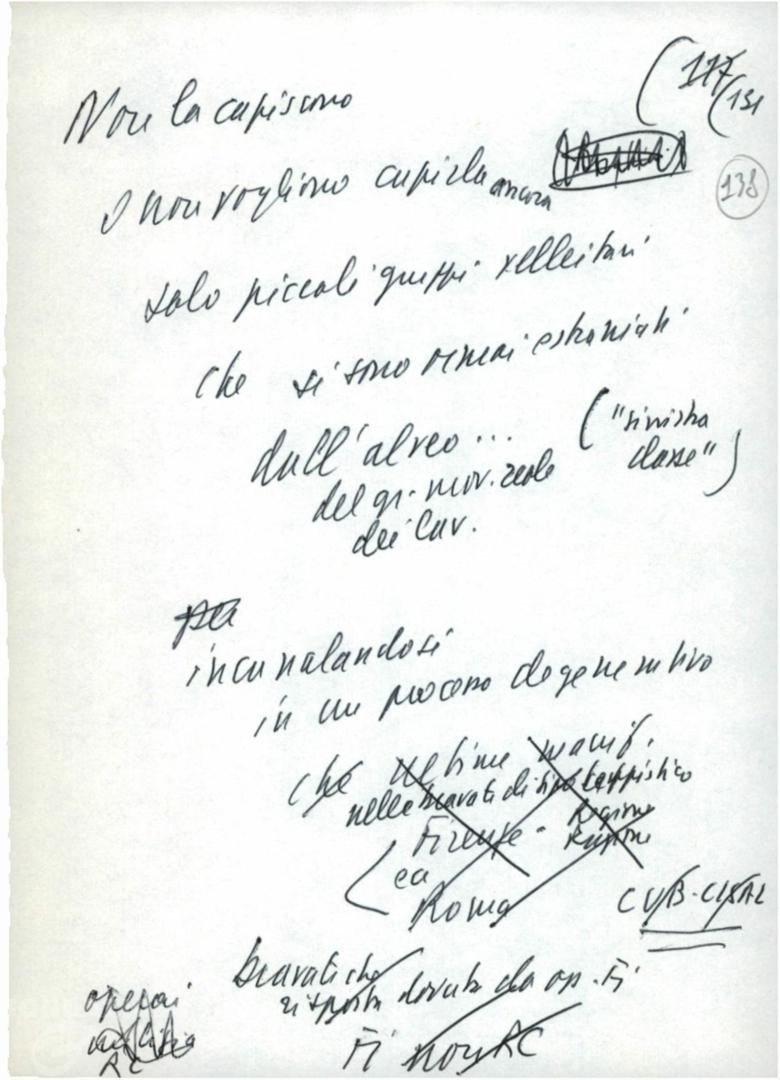 (117
(131
138
Non la capiscono
o non vogliono capirla ancora
solo piccoli gruppi velleitari
che si sono ormai estraniati
dall'alveo...
("sinistra
classe")
del gr. mov. reale
dei lav.
per
incanalandosi
in un processo degenerativo
che ultime manif.
nelle bravate di tipo teppistico
Firenze -
Regione
ea
Roma
CUB-CISAL
bravate che
risposta dovuta da op. Fi
operai
milizia
RC
Fi non RC